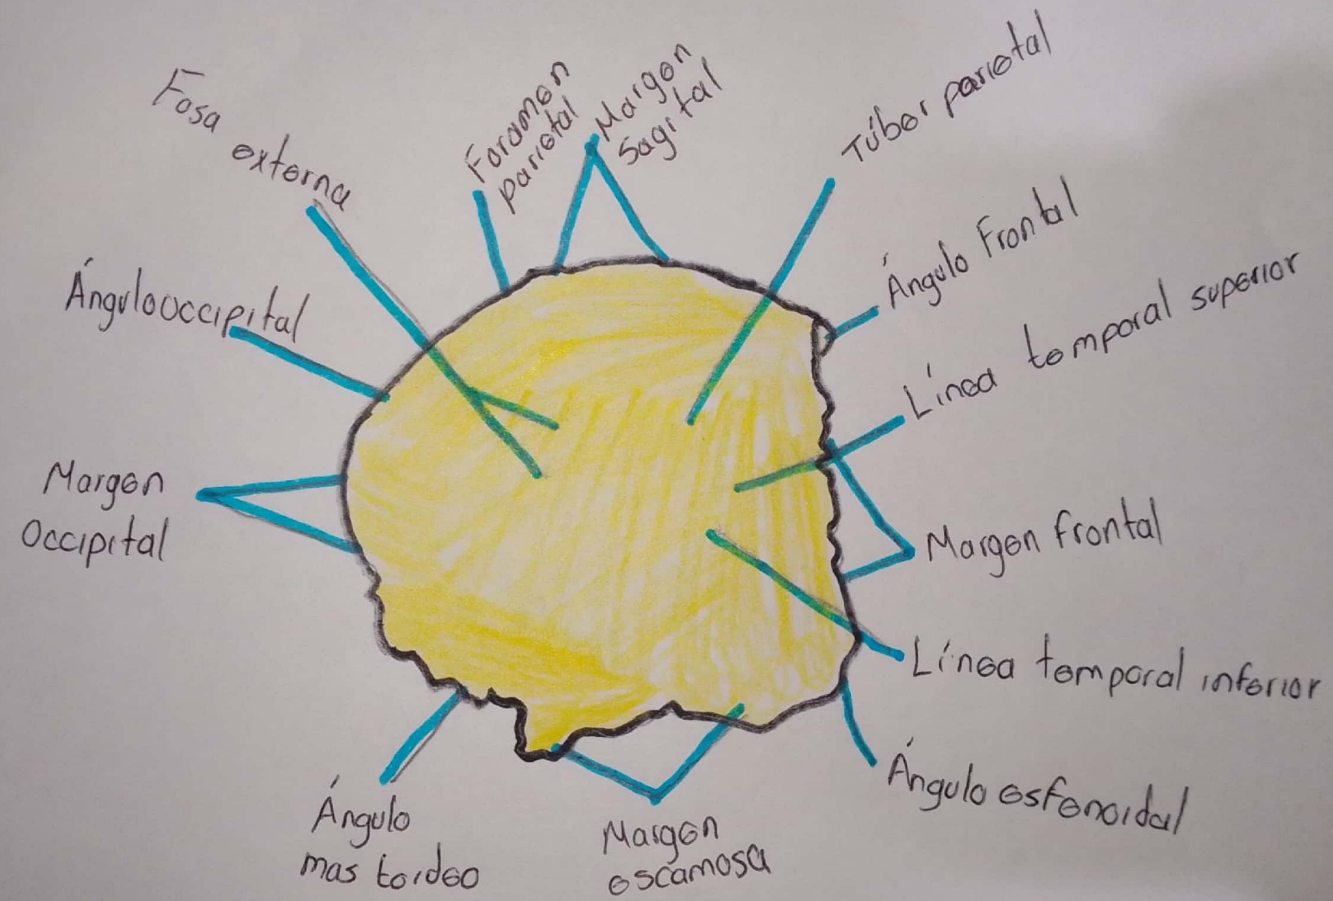 Fosa
externa
Foramen
parietal
Margen
Sagital
Túber parietal
Ángulo Frontal
Línea temporal superior
Margen frontal
Línea temporal inferior
Ángulo esfenoidal
Margen
escamosa
Ángulo
mastoideo
Margen
Occipital
Ángulo occipital